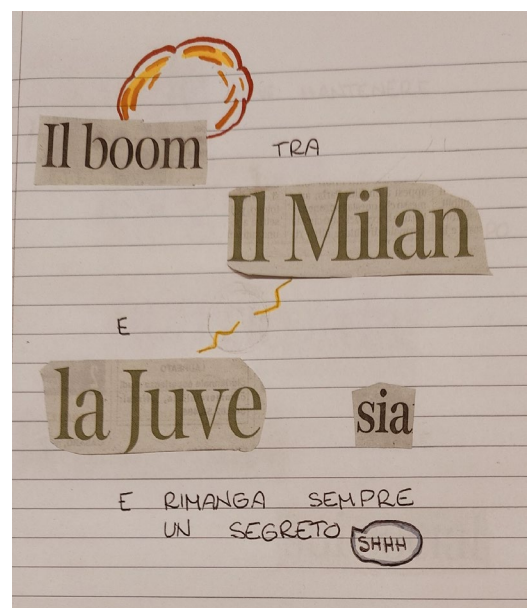 Il boom TRA
Il Milan
E
la Juve sia
E RIMANGA SEMPRE
UN SEGRETO SHHH